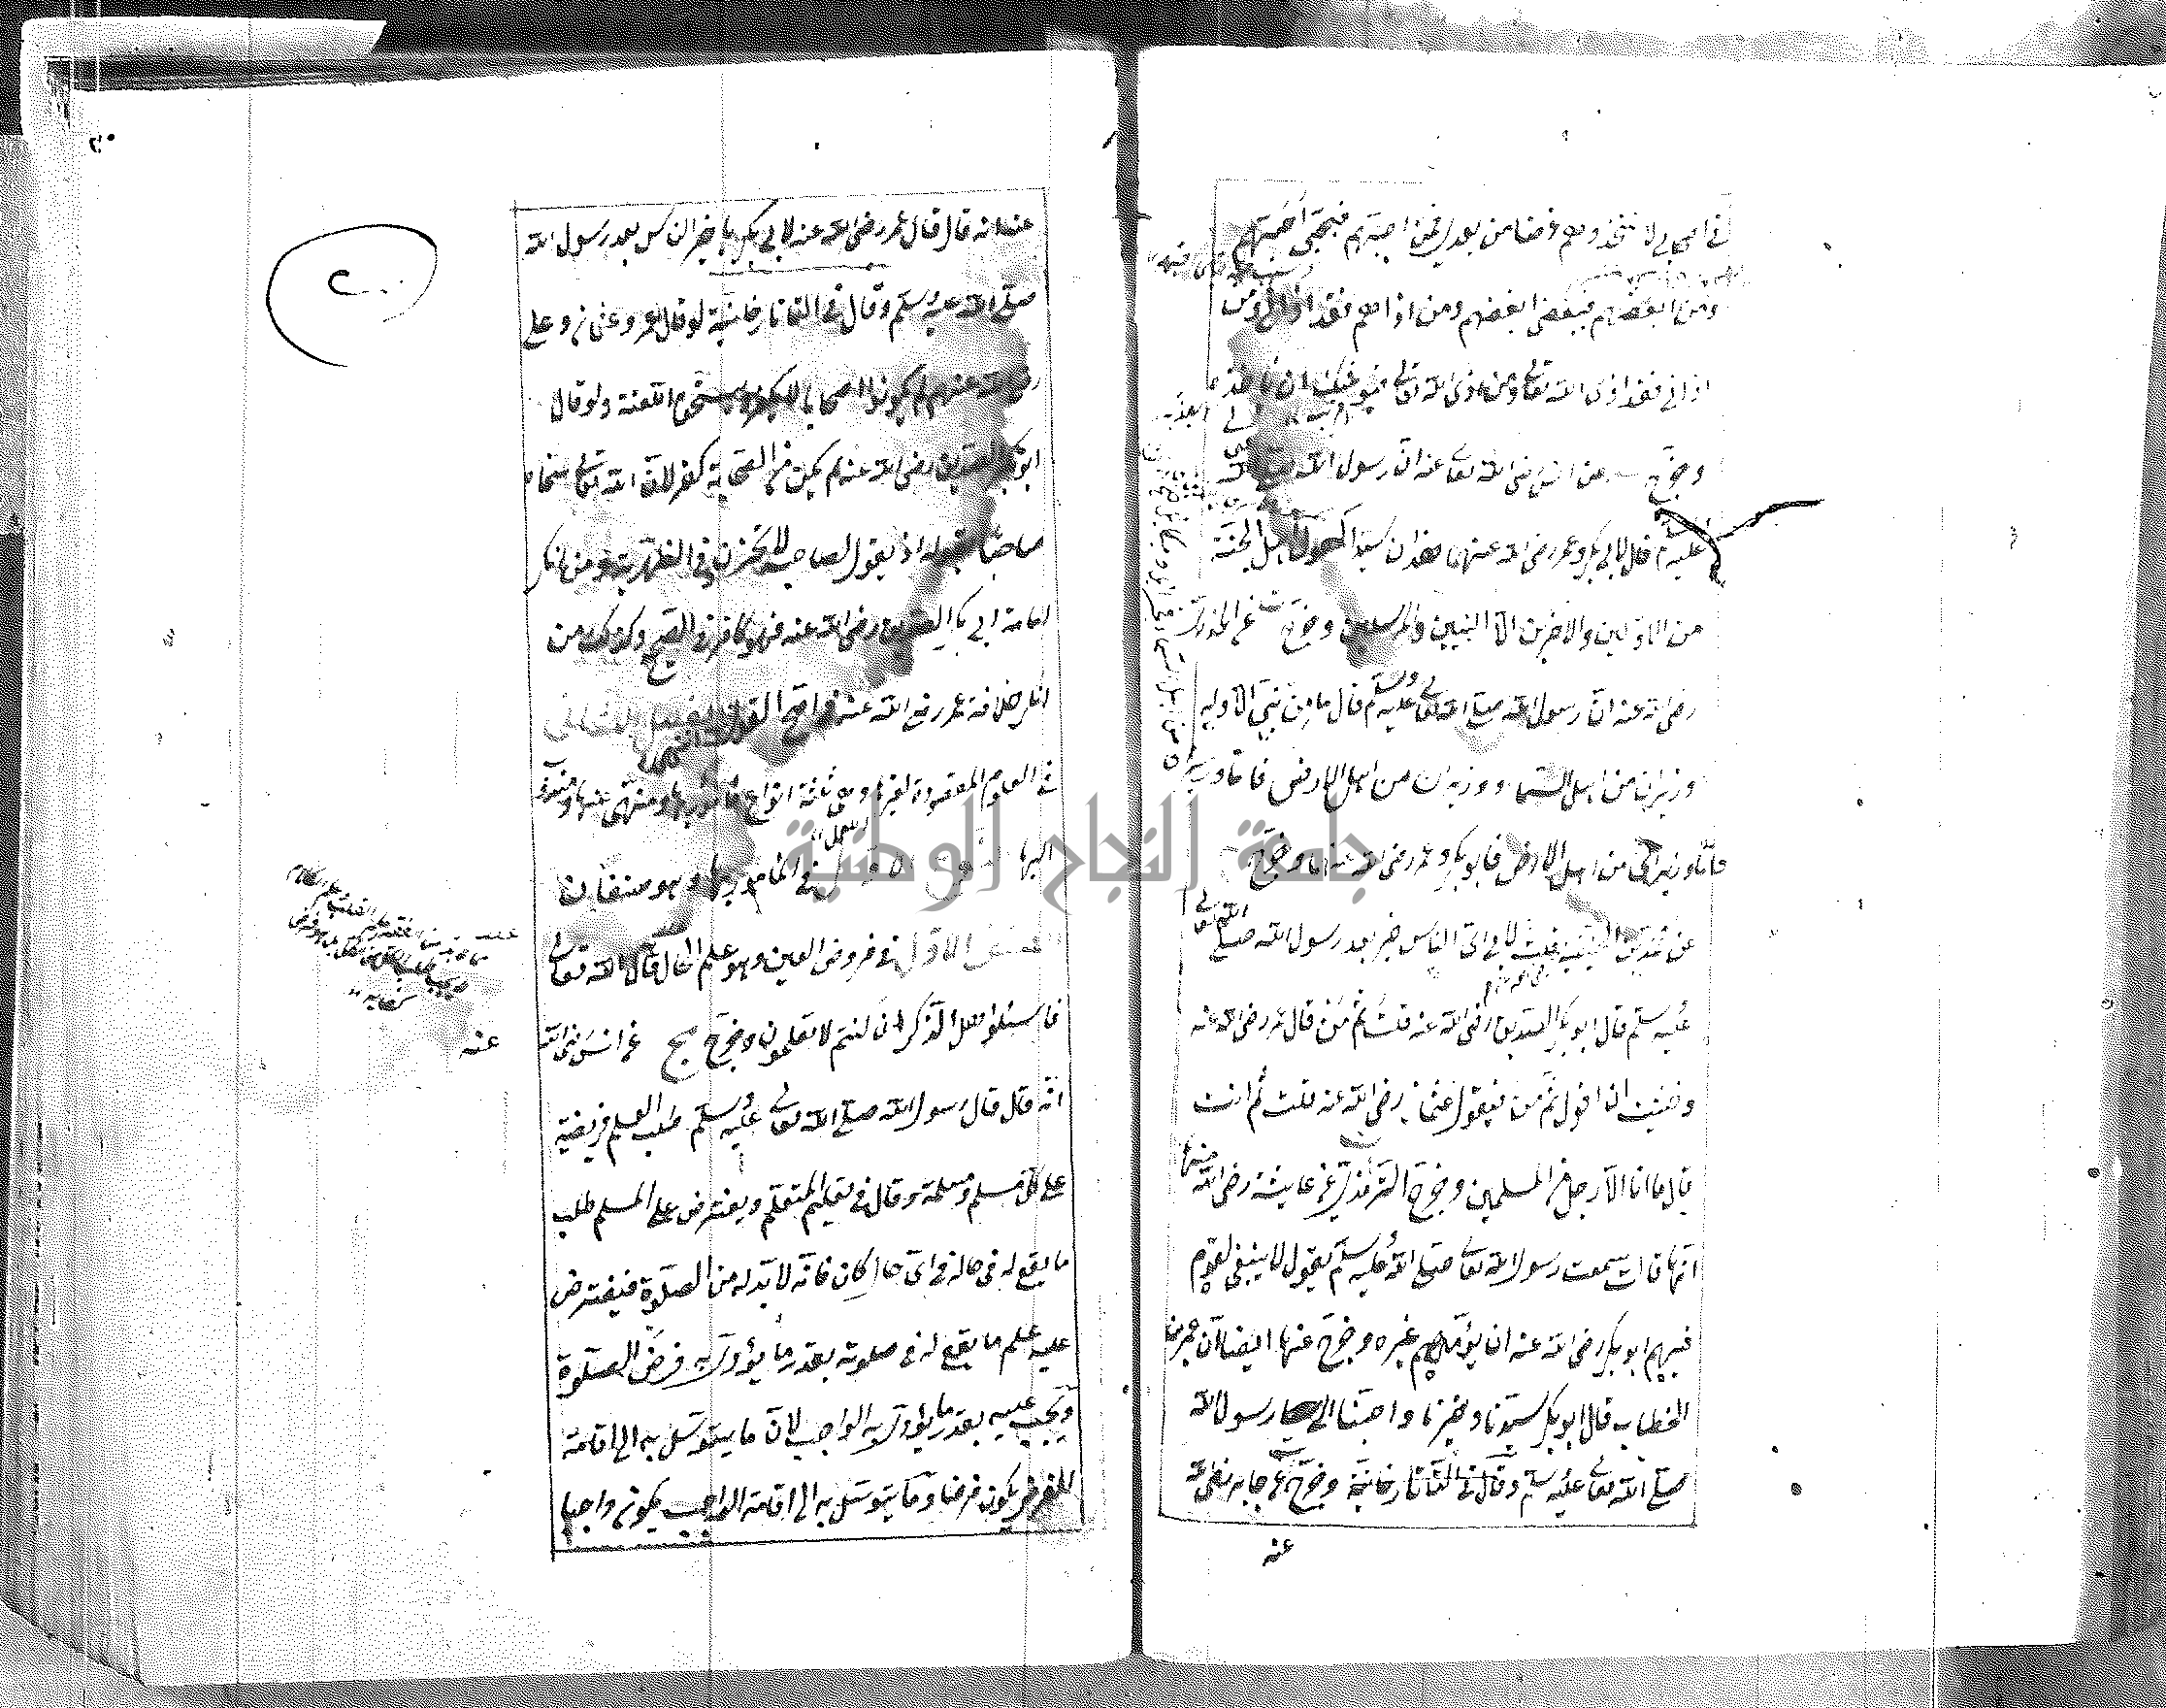 في اصحابي لا تتخذوهم غرضا من بعدي فمن احبهم فبحبي احبهم
ومن ابغضهم فببغضي ابغضهم ومن اذاهم فقد اذاني ومن
اذاني فقد اذى الله تعالى ومن اذى الله تعالى فيوشك ان يأخذه
وخرج عن انس رضي الله تعالى عنه ان رسول الله صلى الله
عليه قال لابي بكر وعمر رضي الله عنهما هذان سيدا كهول اهل الجنة
من الاولين والاخرين الا النبيين والمرسلين وخرج ت عن الخدري
رضي الله عنه ان رسول الله صلى الله تعالى عليه وسلم قال ما من نبي الا وله
وزيران من اهل السماء ووزيران من اهل الارض فاما وزيراي
فاما وزيراي من اهل الارض فابو بكر وعمر رضي الله عنهما وخرج
عن محمد بن الحنفية قلت لابي اي الناس خير بعد رسول الله صلى الله تعالى
عليه وسلم قال ابو بكر الصديق رضي الله عنه قلت ثم من قال عمر رضي الله عنه
وخشيت ان اقول ثم من فيقول عثمان رضي الله عنه قلت ثم انت
قال ما انا الا رجل من المسلمين وخرج الترمذي عن عايشة رضي الله عنها
انها قالت سمعت رسول الله تعالى صلى الله عليه وسلم يقول لا ينبغي لقوم
فيهم ابو بكر رضي الله عنه ان يؤمهم غيره وخرج عنها ايضا ان عمر بن
الخطاب قال ابو بكر سيدنا وخيرنا واحبنا الى رسول الله
صلى الله تعالى عليه وسلم وقال في التاتارخانية وخرج ت عن جابر رضي الله
عنه
عنه انه قال قال عمر رضي الله عنه لابي بكر يا خير الناس بعد رسول الله
صلى الله عليه وسلم وقال في التاتارخانية لو قال عمر وعثمان وعلي
رضي الله عنهم لم يكونوا اصحابا لا يكفر ويستحق اللعنة ولو قال
ابو بكر الصديق رضي الله عنه لم يكن من الصحابة كفر لان الله تعالى سماه
صاحبا بقوله اذ يقول لصاحبه لا تحزن وفي الظهيرية ومن انكر
امامة ابي بكر الصديق رضي الله عنه فهو كافر في الصحيح وكذلك من
انكر خلافة عمر رضي الله عنه في اصح الاقوال الفصل الثاني
في العلوم المقصودة لغيرها وهي ثلثة انواع مأمور بها ومنهي عنها ومندوب
اليها النوع الاول في المأمور بها وهو صنفان
الصنف الاول في فروض العين وهو علم الحال قال الله تعالى
فاسئلوا اهل الذكر ان كنتم لا تعلمون وخرج مج عن انس رضي الله
عنه
انه قال قال رسول الله صلى الله تعالى عليه وسلم طلب العلم فريضة
على كل مسلم ومسلمة وقال في تعليم المتعلم ويفترض على المسلم طلب
ما يقع له في حاله في اي حال كان فانه لا بد له من الصلوة فيفترض
عليه علم ما يقع له في صلوته بقدر ما يؤدي به فرض الصلوة
ويجب عليه بقدر ما يؤدي به الواجب لان ما يتوسل به الى اقامة
الفرض يكون فرضا وما يتوسل به الى اقامة الواجب يكون واجبا
جامعة النجاح الوطنية